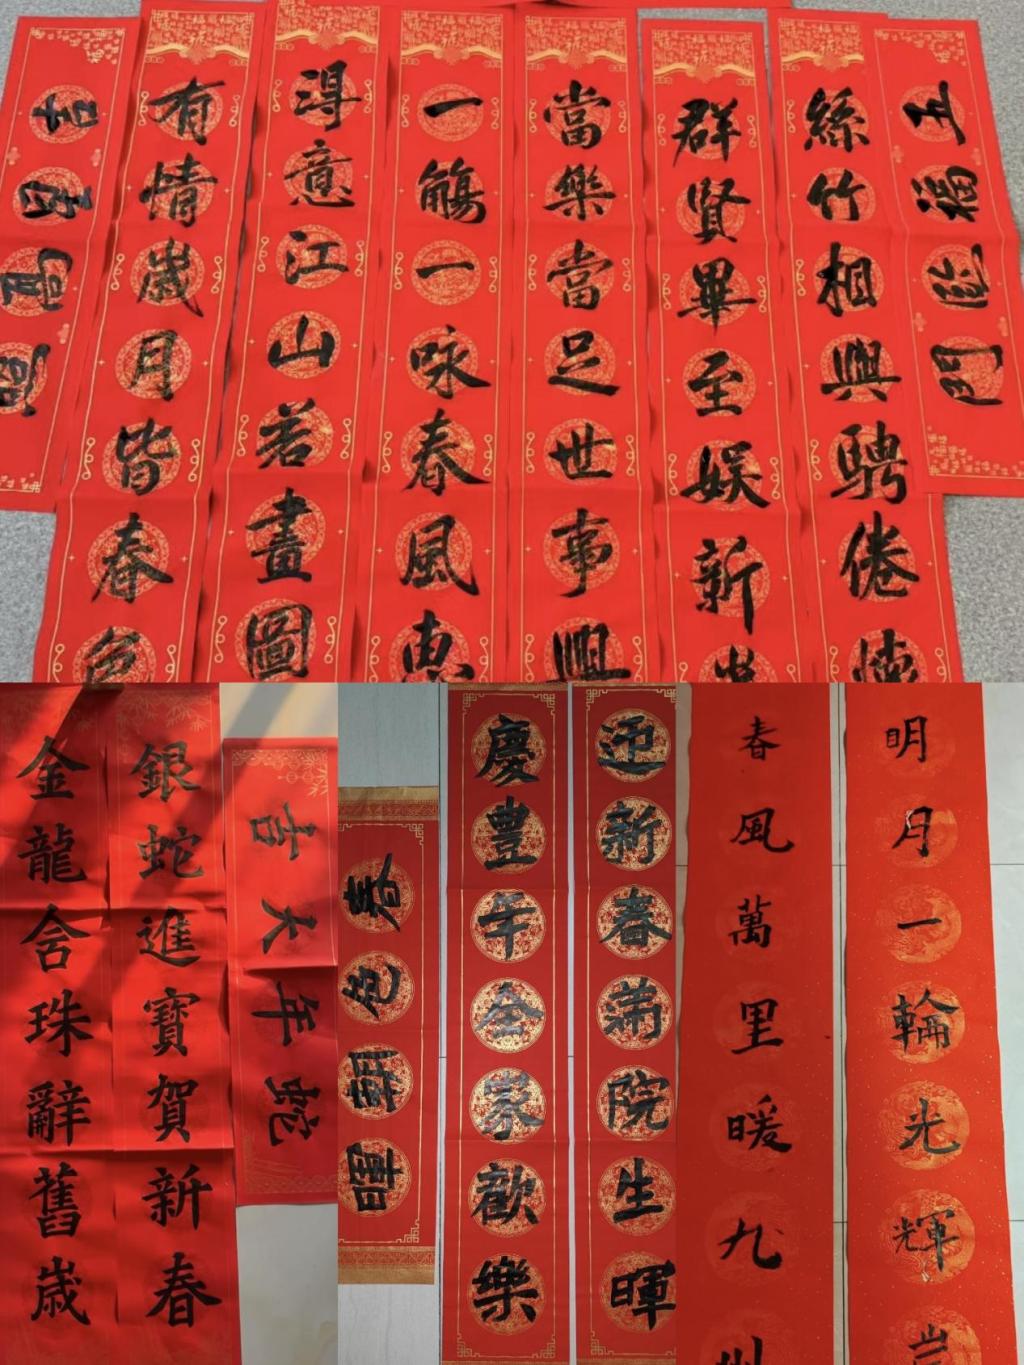 五福臨門
絲竹相與騁倦
群賢畢至娛新
當樂當足世事興
一觴一咏春風惠
得意江山若畫圖
有情歲月皆春色
吉星高照
明月一輪光輝
春風萬里暖九
迎新春滿院生暉
慶豊年全家歡樂
春色朝暉
蛇年大吉
銀蛇進寶賀新春
金龍含珠辭舊歲